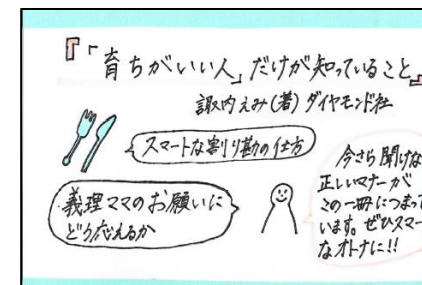 『「育ちがいい人」だけが知っていること』
諏内えみ(著) ダイヤモンド社
スマートな割り勘の仕方
義理ママのお願いに
どう応えるか
今さら聞けな
正しいマナーが
この一冊につまって
います。ぜひスマー
なオトナに!!